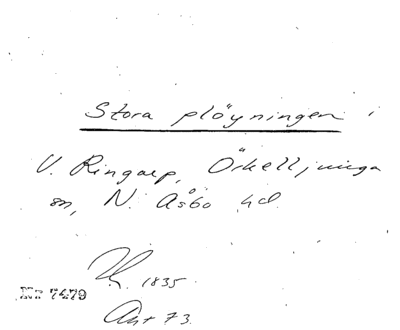 Stora plöyningen i
V. Ringarp, Örkelljunga
sn, N. Åsbo hd.
1835
Nr 7479
Avt 73.